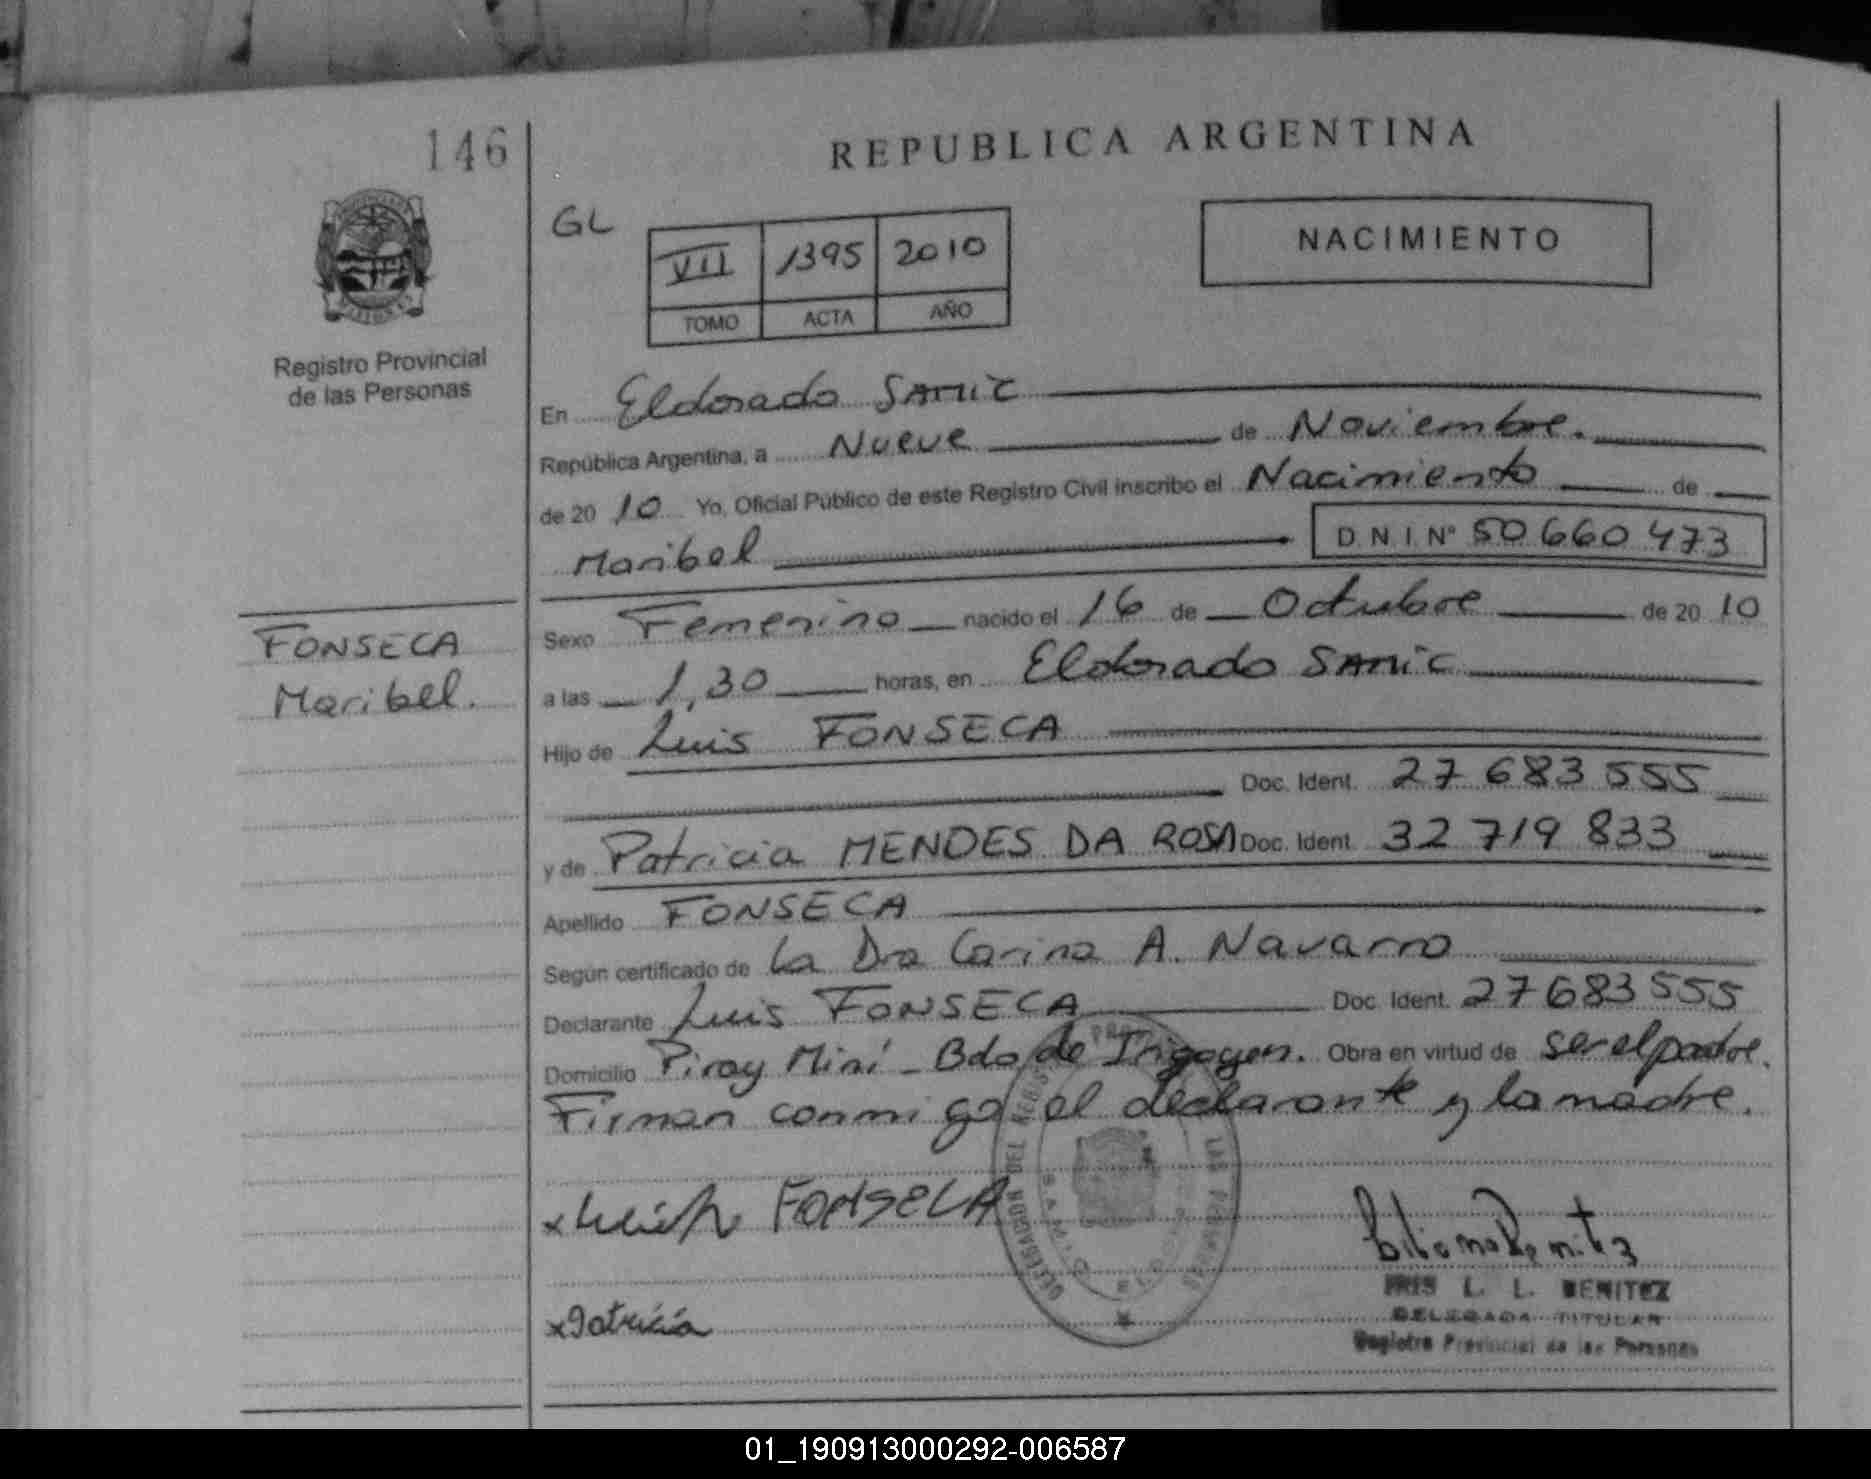 146
REPUBLICA ARGENTINA
GL
VII 1395 2010
TOMO ACTA AÑO
NACIMIENTO
Registro Provincial
de las Personas
En Eldorado SAMIC
República Argentina, a Nueve de Noviembre.
de 20 10 Yo, Oficial Público de este Registro Civil inscribo el Nacimiento de
Maribel D.N.I. Nº 50 660 473
FONSECA
Maribel.
Sexo Femenino nacido el 16 de Octubre de 20 10
a las 1,30 horas, en Eldorado SAMIC
Hijo de Luis FONSECA
Doc. Ident. 27 683 555
y de Patricia MENDES DA ROSA Doc. Ident. 32 719 833
Apellido FONSECA
Según certificado de La Dra Carina A. Navarro
Declarante Luis FONSECA Doc. Ident. 27 683 555
Domicilio Piray Miní - Bdo de Irigoyen. Obra en virtud de ser el padre.
Firman conmigo el declarante y la madre.
x FONSECA
DELEGACION DEL REGISTRO LAS PERSONAS
x Patricia
IRIS L. L. BENITEZ
DELEGADA TITULAR
Registro Provincial de las Personas
01_190913000292-006587